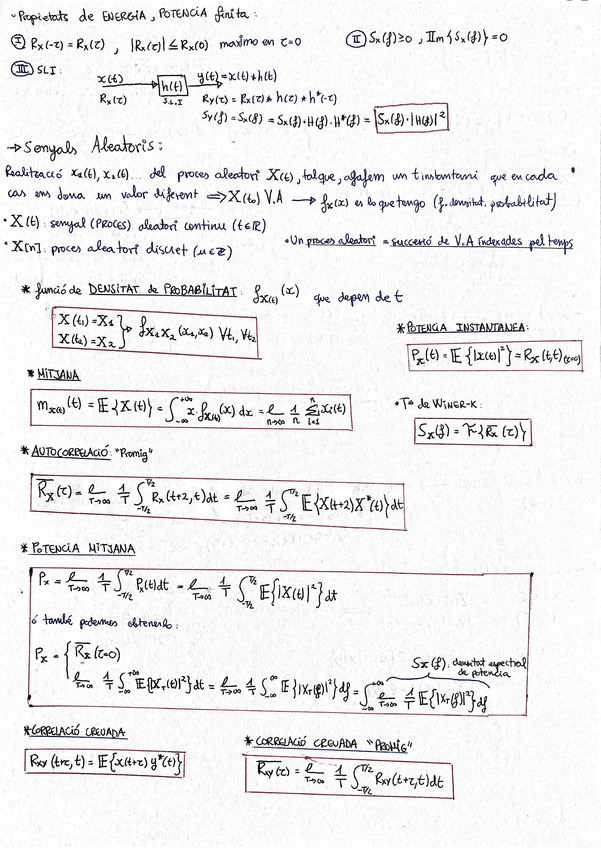 • Propietats de ENERGIA, POTENCIA finita:
I Rx(-τ) = Rx(τ) , |Rx(τ)| ≤ Rx(0) maximo en τ=0
II Sx(f) ≥ 0 , Im{Sx(f)} = 0
III SLI:
x(t) → h(t) → y(t) = x(t) * h(t)
Rx(τ) S.L.I Ry(τ) = Rx(τ) * h(τ) * h*(-τ)
Sy(f) = Sx(f) = Sx(f)·H(f)·H*(f) = Sx(f)·|H(f)|²
→ Senyals Aleatoris:
Realització x₁(t), x₂(t)... del proces aleatori X(t), tal que, agafem un t instantani que en cada
cas ens dona un valor diferent ⇒ X(t₀) V.A → fx(x) es lo que tengo (f. densitat. probabilitat)
• X(t): senyal (PROCES) aleatori continu (t∈ℝ)
• X[n]: proces aleatori discret (n∈ℤ)
• Un proces aleatori = successió de V.A indexades pel temps
* funció de DENSITAT de PROBABILITAT: fX(t)(x) que depen de t
X(t₁) = X₁
X(t₂) = X₂ } → fX₁X₂(x₁,x₂) ∀t₁, ∀t₂
* POTENCIA INSTANTANEA:
Px(t) = E{|x(t)|²} = Rx(t,t) (τ=0)
* MITJANA
mx(t)(t) = E{X(t)} = ∫_{-∞}^{+∞} x·fX(t)(x) dx = l_{n→∞} 1/n Σ_{i=1}^{n} xi(t)
• Tª de WINER-K:
Sx(f) = F{R̅x(τ)}
* AUTOCORRELACIÓ: "Promig"
R̅x(τ) = l_{T→∞} 1/T ∫_{-T/2}^{T/2} Rx(t+2, t)dt = l_{T→∞} 1/T ∫_{-T/2}^{T/2} E{X(t+2)X*(t)}dt
* POTENCIA MITJANA
Px = l_{T→∞} 1/T ∫_{-T/2}^{T/2} Px(t)dt = l_{T→∞} 1/T ∫_{-T/2}^{T/2} E{|X(t)|²}dt
ó també podemos obtenerlo:
Px = { R̅x(τ=0)
Sx(f): densitat espectral
de potencia
l_{T→∞} 1/T ∫_{-∞}^{+∞} E{|X_T(t)|²}dt = l_{T→∞} 1/T ∫_{-∞}^{∞} E{|X_T(f)|²}df = ∫_{-∞}^{+∞} l_{T→∞} 1/T E{|X_T(f)|²}df
* CORRELACIÓ CREUADA
Rxy(t+τ, t) = E{x(t+τ) y*(t)}
* CORRELACIÓ CREUADA "PROMIG"
R̅xy(τ) = l_{T→∞} 1/T ∫_{-T/2}^{T/2} Rxy(t+τ, t)dt